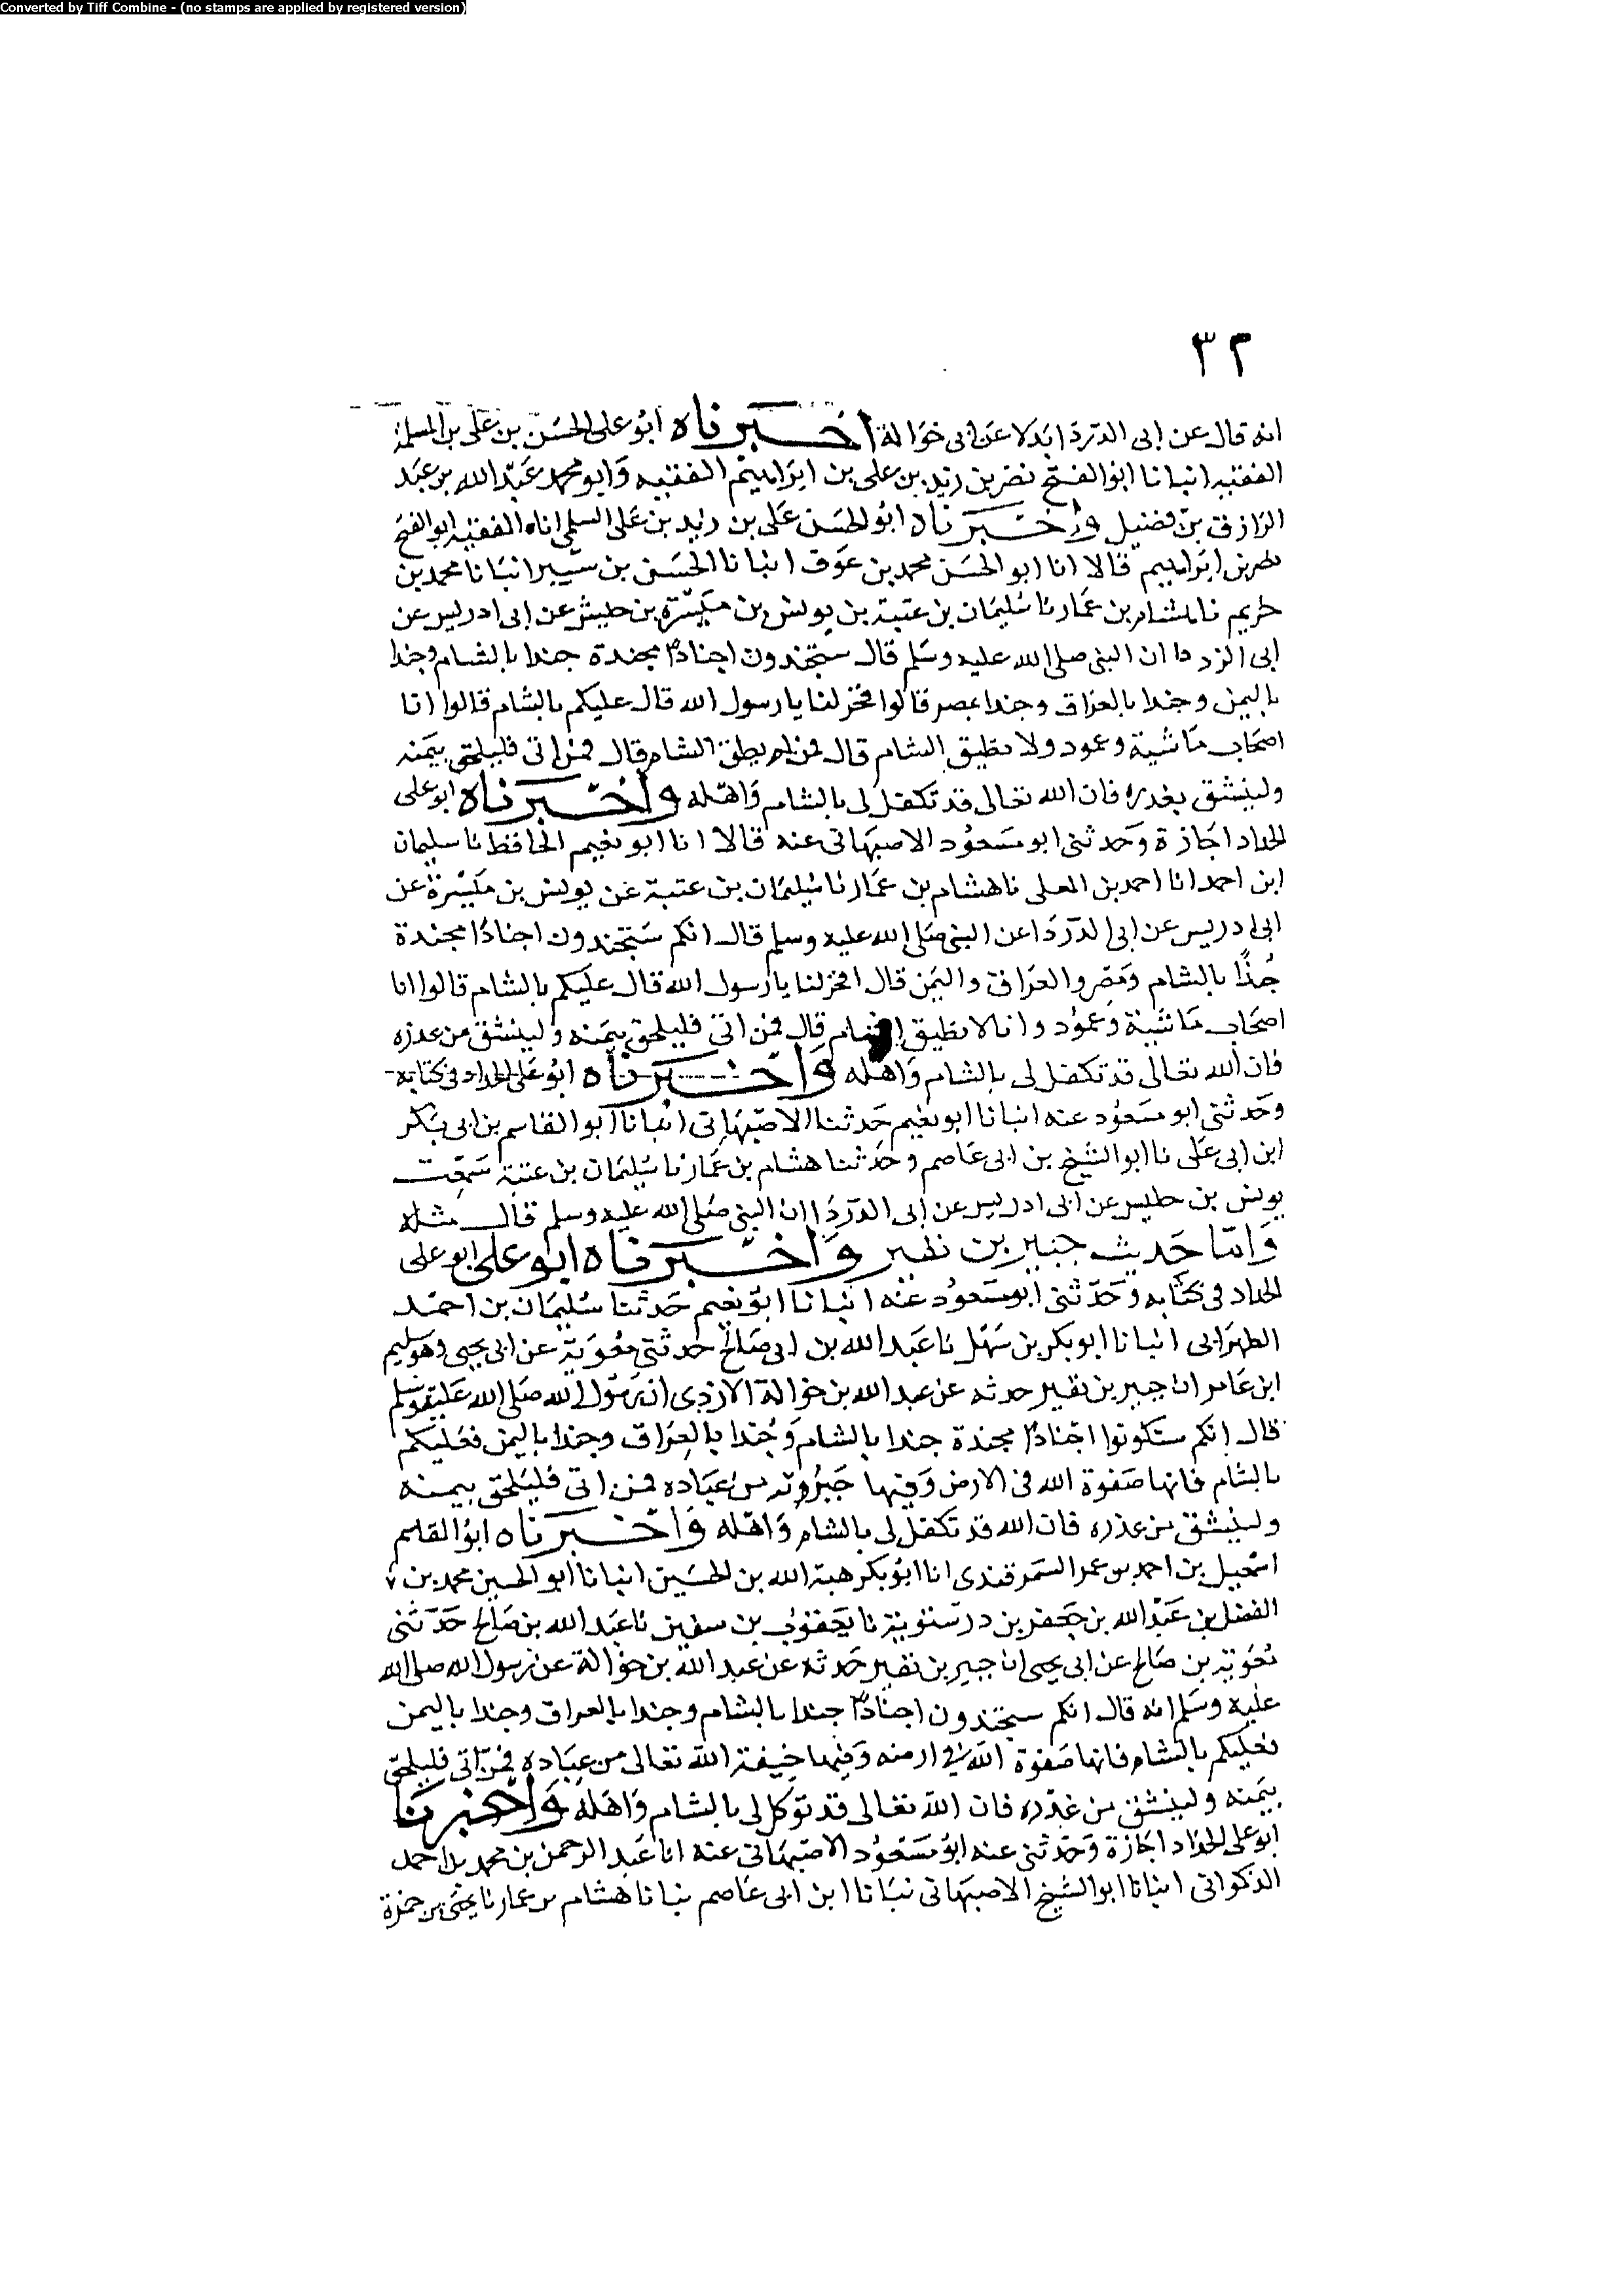 Converted by Tiff Combine - (no stamps are applied by registered version)
٣٢
انه قال عن ابى الدردا بدلا عن ابى حوالة اخبرناه ابو على الحسن بن على بن المسلمة
الفقيه انبانا ابو الفتح نصر بن زيد بن على بن ابراهيم الفقيه وابو محمد عبد الله بن عبد
الرازق بن فضيل واخبرناه ابو الحسن على بن زيد بن على السلمى اناه الفقيه ابو الفتح
نصر بن ابراهيم قالا انا ابو الحسن محمد بن عوف انبانا الحسن بن منير انبانا محمد بن
خريم نا هشام بن عمار نا سليمان بن عتبة بن يونس بن ميسرة بن حليس عن ابى ادريس عن
ابى الدردا ان النبى صلى الله عليه وسلم قال ستجندون اجنادا مجندة جندا بالشام وجندا
باليمن وجندا بالعراق وجندا بمصر قالوا فخر لنا يا رسول الله قال عليكم بالشام قالوا انا
اصحاب ماشية وعمود ولا نطيق الشام قال فمن لم يطق الشام قال فمن اتى فليلحق بيمنه
ولينشق بغدره فان الله تعالى قد تكفل لى بالشام واهله واخبرناه ابو على
الحداد اجازة وحدثنى ابو مسعود الاصبهانى عنه قالا انا ابو نعيم الحافظ نا سليمان
ابن احمد انا احمد بن المعلى نا هشام بن عمار نا سليمان بن عتبة عن يونس بن ميسرة عن
ابى ادريس عن ابى الدردا عن النبى صلى الله عليه وسلم قال انكم ستجندون اجنادا مجندة
جندا بالشام ومصر والعراق واليمن قال فخر لنا يا رسول الله قال عليكم بالشام قالوا انا
اصحاب ماشية وعمود وانا لا نطيق الشام قال فمن اتى فليلحق بيمنه ولينشق من عذره
فان الله تعالى قد تكفل لى بالشام واهله واخبرناه ابو على الحداد فى كتابه
وحدثنى ابو مسعود عنه انبانا ابو نعيم حدثنا الاصبهانى انبانا ابو القاسم بن ابى بكر
ابن ابى على نا ابو الشيخ بن ابى عاصم وحدثنا هشام بن عمار نا سليمان بن عتبة سمعت
يونس بن حليس عن ابى ادريس عن ابى الدردا ان النبى صلى الله عليه وسلم قال مثله
واما حديث جبير بن نفير واخبرناه ابو على ابو على
الحداد فى كتابه وحدثنى ابو مسعود عنه انبانا ابو نعيم حدثنا سليمان بن احمد
الطبرانى انبانا ابو بكر بن سهل نا عبد الله بن ابى صالح حدثنى معوية عن ابى يحيى وهو سليم
ابن عامر ان جبير بن نفير حدثه عن عبد الله بن حوالة الازدى ان رسول الله صلى الله عليه وسلم
قال انكم ستكونوا اجنادا مجندة جندا بالشام وجندا بالعراق وجندا باليمن فعليكم
بالشام فانها صفوة الله فى الارض وفيها من عباده فمن اتى فليلحق بيمنه
ولينشق من عذره فان الله قد تكفل لى بالشام واهله واخبرناه ابو القاسم
اسمعيل بن احمد بن عمر السمرقندى انا ابو بكر هبة الله بن الحسين انبانا ابو الحسين محمد بن
الفضل بن عبد الله بن جعفر بن درستويه نا يعقوب بن سفين نا عبد الله بن صالح حدثنى
معوية بن صالح عن ابى يحيى ان جبير بن نفير حدثه عن عبد الله بن حوالة عن رسول الله صلى الله
عليه وسلم انه قال انكم ستجندون اجنادا جندا بالشام وجندا بالعراق وجندا باليمن
فعليكم بالشام فانها صفوة الله فى ارضه وفيها خيفة الله تعالى من عباده فمن اتى فليلحق
بيمنه ولينشق من غدره فان الله تعالى قد توكل لى بالشام واهله واخبرنا
ابو على الحداد اجازة وحدثنى عنه ابو مسعود الاصبهانى عنه انا عبد الرحمن بن محمد بن احمد
الذكوانى انبانا ابو الشيخ الاصبهانى نبانا ابن ابى عاصم نبانا هشام بن عمار نا يحيى بن حمزة